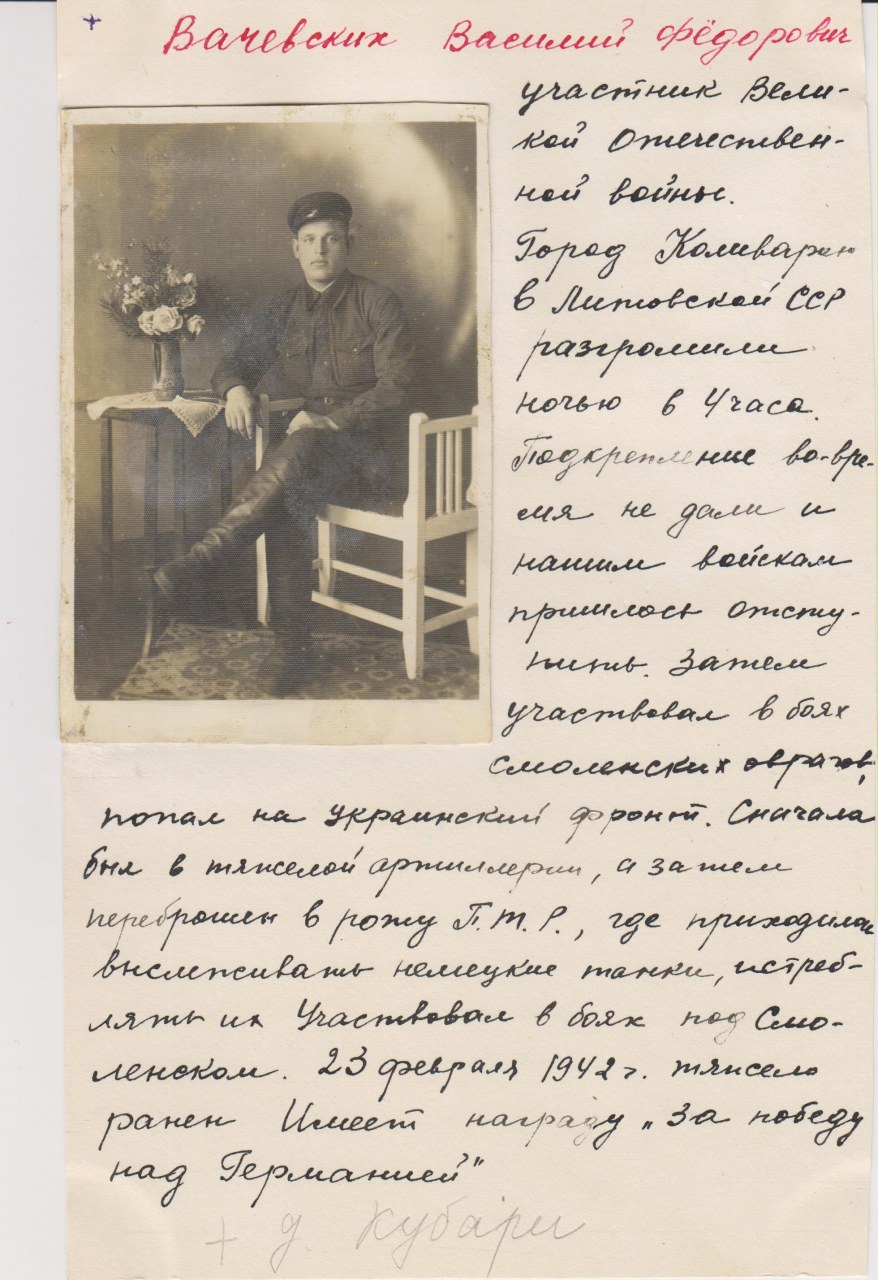 +
Вачевских Василий Фёдорович
участник Вели-
кой Отечествен-
ной войны.
Город Коливарин
в Литовской ССР
разгромили
ночью в 4 часа.
Подкрепление во-вре-
мя не дали и
нашим войскам
пришлось отсту-
пить. Затем
участвовал в боях
смоленских оврагов,
попал на Украинский фронт. Сначала
был в тяжелой артиллерии, а затем
переброшен в роту П.Т.Р., где приходилось
выслеживать немецкие танки, истреб-
лять их Участвовал в боях под Смо-
ленском. 23 февраля 1942 г. тяжело
ранен Имеет награду „За победу
над Германией"
+ д. Кубари